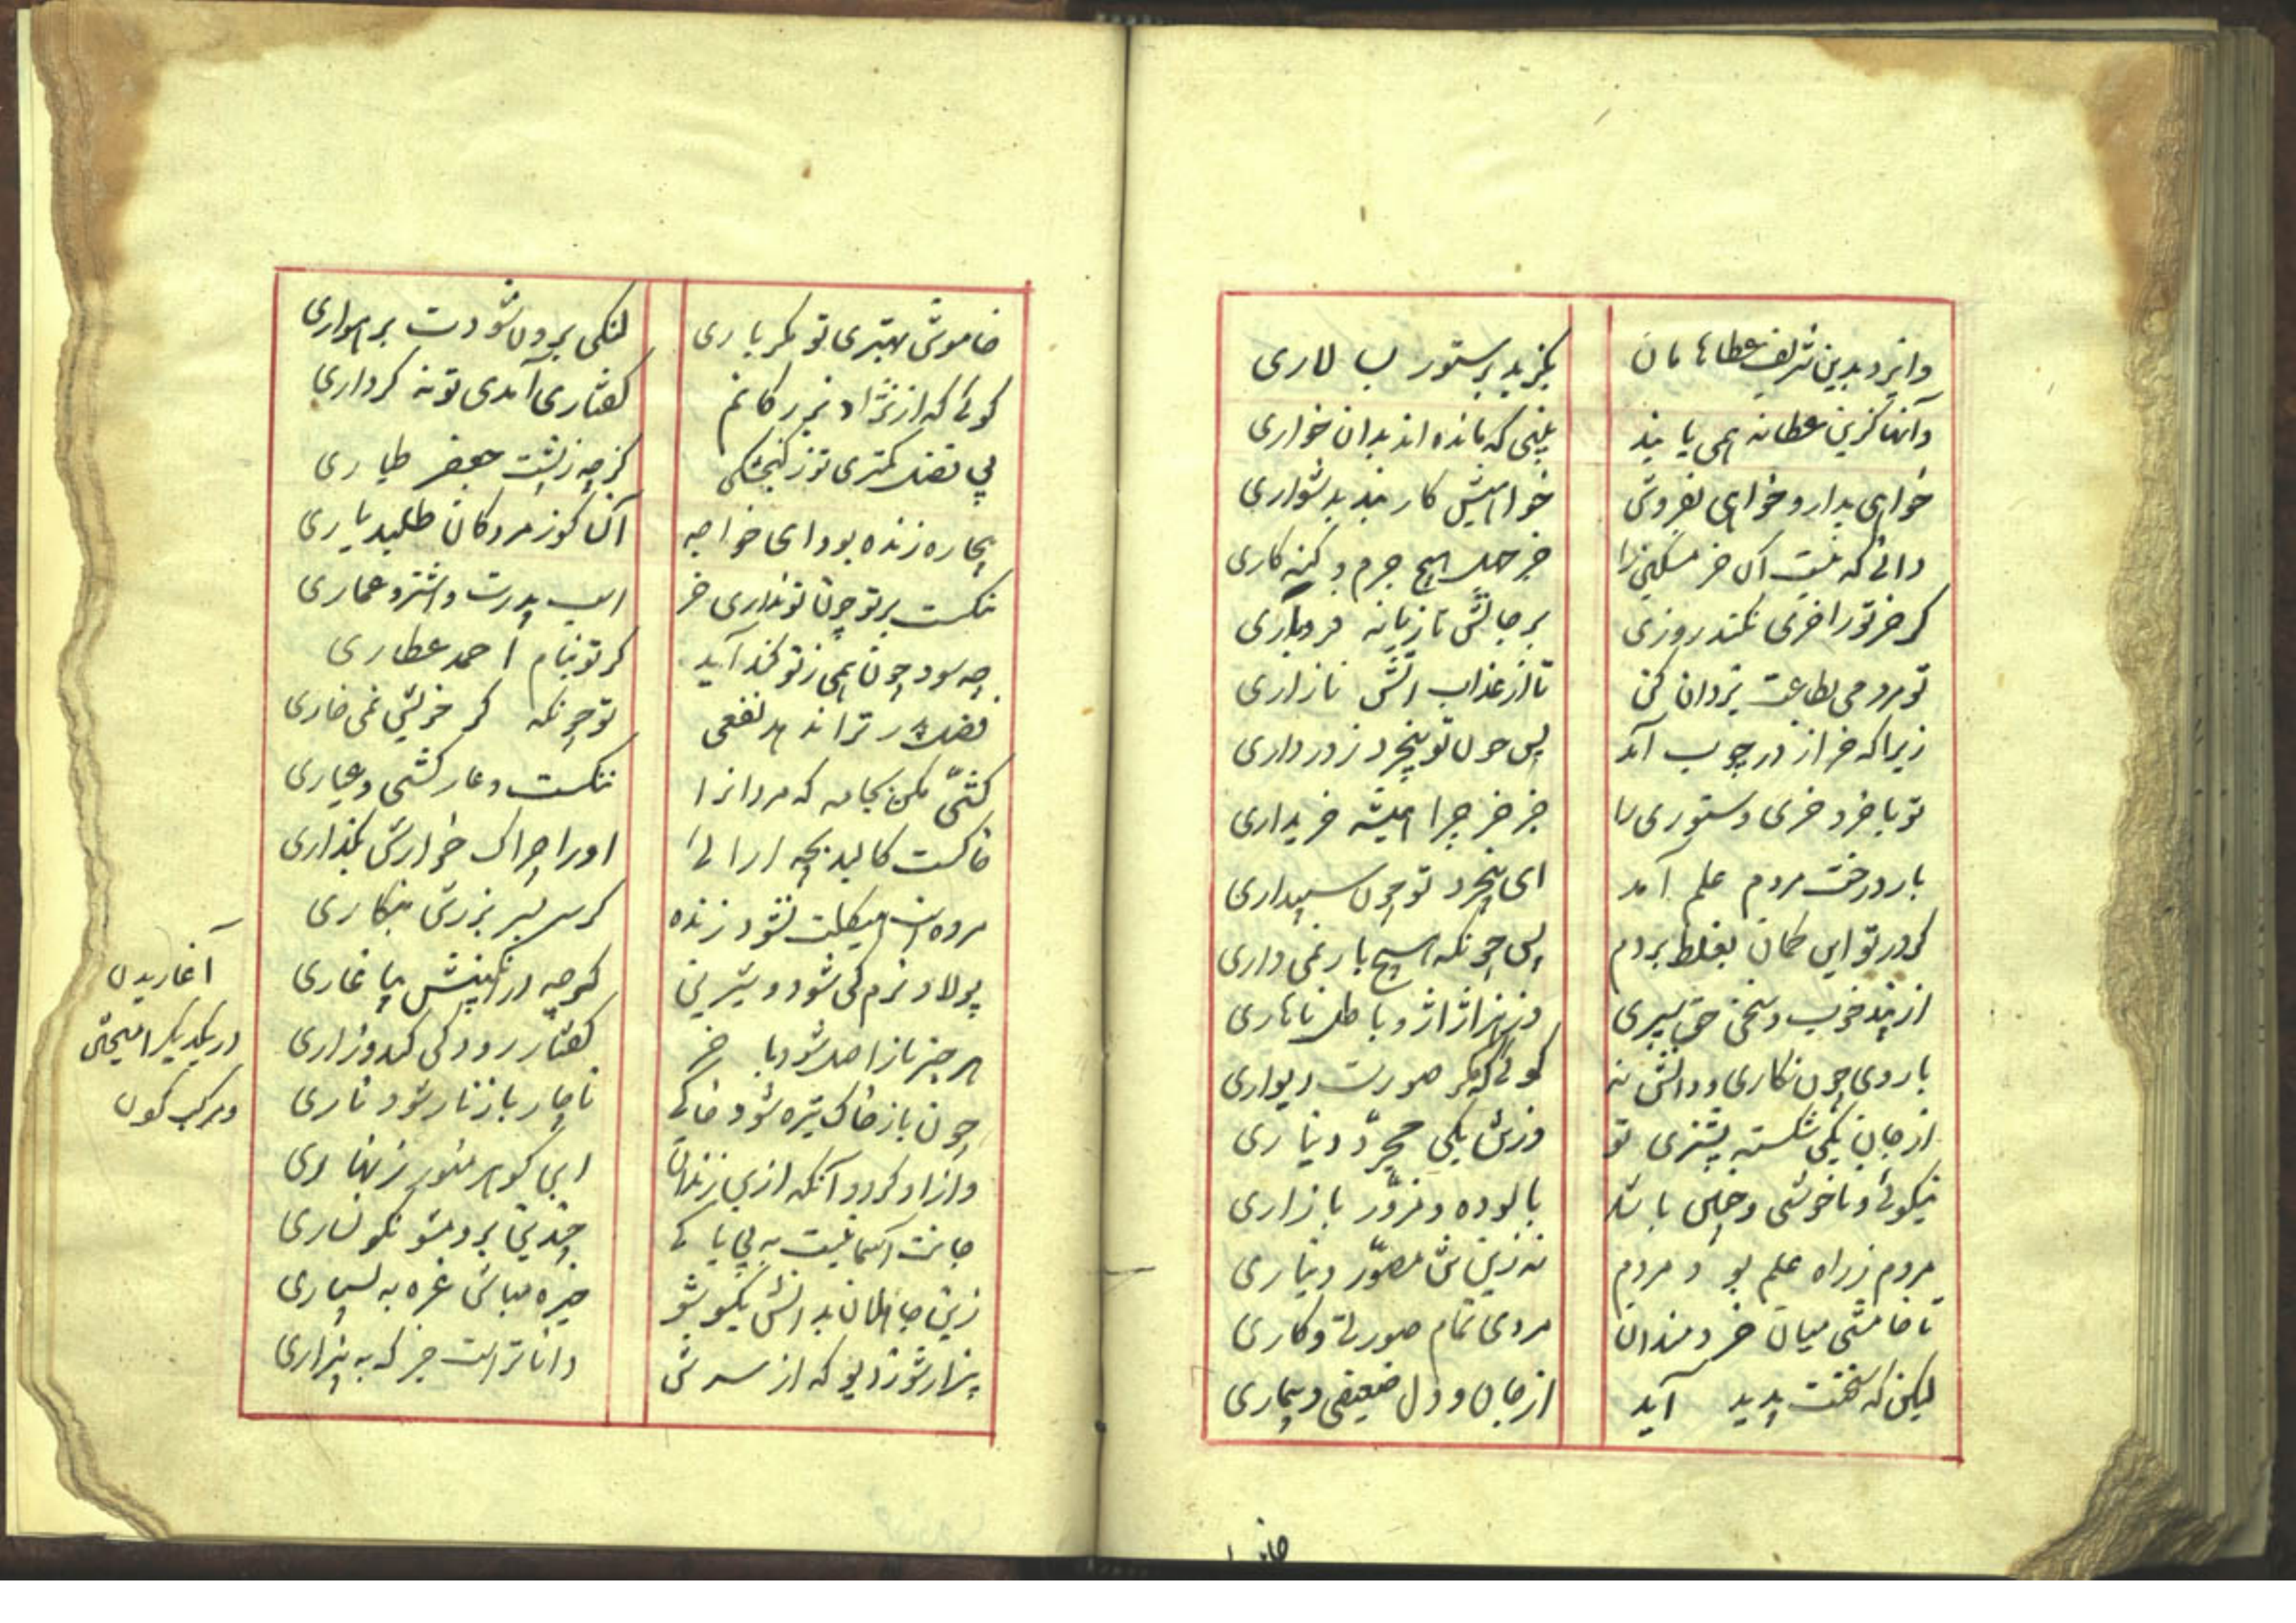 وایزد بدین شریف عطاها مان
بگزید بر ستور بسالاری
وآنها کزین عطا نه همی یابند
بینی که مانده اند بدان خواری
خواهی بدار و خواهی بفروش
خواهیش کار بند بدشواری
دانی که نیست آن خر مسکین را
جز جهل هیچ جرم و گنه کاری
گر خر تو را خری نکند روزی
بر جانش تازیانه فروباری
تو مردمی بطاعت یزدان کن
تا از عذاب آتش نازاری
زیرا که خر از در چوب آمد
پس چون تو بیخرد ز در داری
تو با خرد خری و ستوری را
جز خر چرا همیشه خریداری
بار درخت مردم علم آمد
ای بیخرد تو چون سپیداری
گر در تو این گمان بغلط بردم
پس چونکه هیچ بار نمی داری
از پند خوب و سخن حق سیری
وز هزل و ژاژ و باطل ناهاری
با روی چون نگاری و دانش نه
گوئی که مگر صورت دیواری
از جان یکی شکسته پشیزی تو
وزتن یکی مجرد دیناری
نیکوئی و ناخوشی و چنین باشد
پالوده و مزور بازاری
مردم ز راه علم بود مردم
نه زین تن مصور دیناری
تا خامشی میان خردمندان
مردی تمام صورتی و کاری
لیکن که سخنت پدید آید
از جان و دل ضعیفی و بیماری
خاموش
خاموش بهتری تو مگر باری
لنگی برون شودت بر هواری
گوئی که از نژاد بزرگانم
گفتاری آمدی تو نه کرداری
بی فضل کمتری تو ز گنجشکی
گرچه ز پشت جعفر طیاری
بیچاره زنده بود ای خواجه
آن کو ز مردگان طلبد یاری
ننگست بر تو چون تو نداری خر
اسب پدرت و اشتر و عماری
چه سود چون همی ز تو گند آید
گر تو بنام احمد عطاری
فضل پدر ترا ندهد نفعی
تو چونکه گر خویش نمی خاری
کشی مکن بجامه که مردانرا
ننگست و عار کشی و عیاری
خاکست کالبد بچه آرائی
او را چراک خوارش نگذاری
مرده است هیکلت نشود زنده
گر سر بسر بزرش بنگاری
پولاد نرم کی شود و شیرین
گرچه در انگبینش بیاغاری
هر چیز باز اصل شود باخر
گفتار رودکی کند و زاری
چون باز خاک تیره شود خاکی
ناچار باز نار شود ناری
وازاد گردد آنکه ازین زندان
این گوهر منور زنهاری
جانت آسمانیست به بی پاکی
چندین برو مشو نگونساری
زین جاهلان بدانش یکسو شو
خیره مباش غره به بسیاری
بیزار شو ز دیو که از سرش
دانا نرست جز که به بیزاری
آغاریدن
در یکدیگر آمیختن
و مرکب کردن